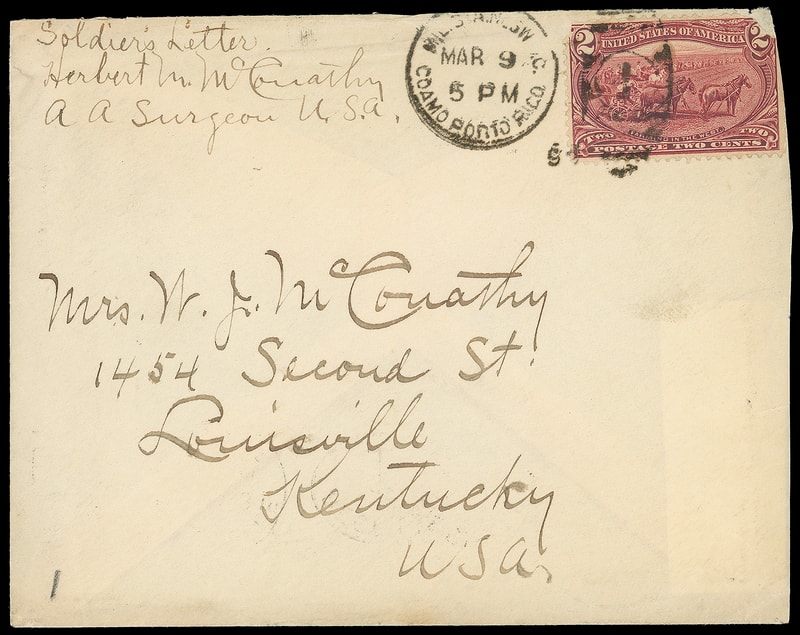 Soldier's Letter.
Herbert M. McConathy
A A Surgeon U.S.A.
MIL. STA. No.
MAR 9
5 PM
COAMO PORTO RICO.
2 UNITED STATES OF AMERICA 2
FARMING IN THE WEST.
TWO TWO
POSTAGE TWO CENTS
Mrs. W. J. McConathy
1454 Second St.
Louisville
Kentucky
U.S.A.